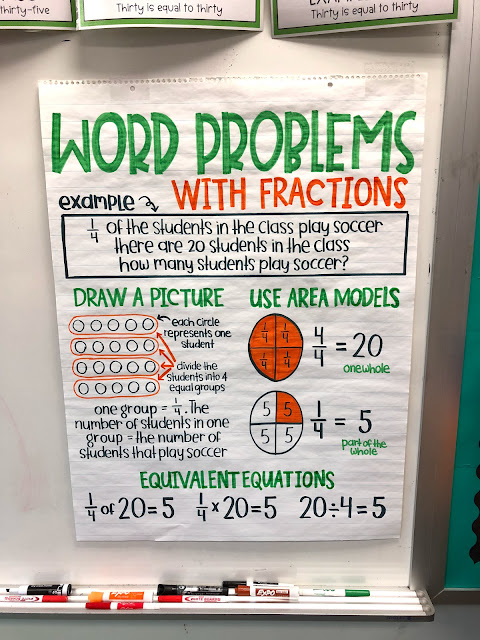 thirty-five
Thirty is equal to thirty
Thirty is equal to thirty
WORD PROBLEMS
WITH FRACTIONS
example
1/4 of the students in the class play soccer
there are 20 students in the class
how many students play soccer?
DRAW A PICTURE
each circle
represents one
student
divide the
students into 4
equal groups
one group = 1/4. The
number of students in one
group = the number of
students that play soccer
USE AREA MODELS
1/4 1/4
1/4 1/4
4/4 = 20
one whole
5 5
5 5
1/4 = 5
part of the
whole
EQUIVALENT EQUATIONS
1/4 of 20=5 1/4 x 20=5 20÷4=5
EXPO